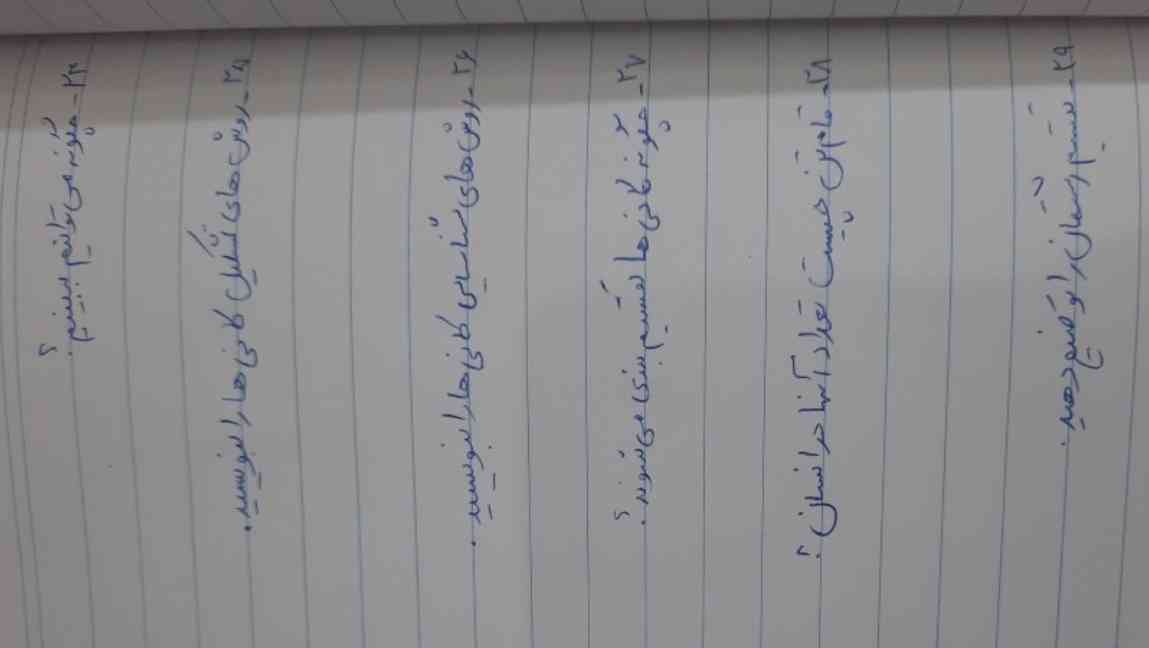 ۲۴- چگونه می توانیم ببینیم؟
۲۵- روش های تشکیل کانی ها را بنویسید.
۲۶- روش های شناسایی کانی ها را بنویسید.
۲۷- چگونه کانی ها تقسیم بندی می شوند؟
۲۸- فام تن چیست تعداد آنها در انسان؟
۲۹- تقسیم رشتمان را توضیح دهید.